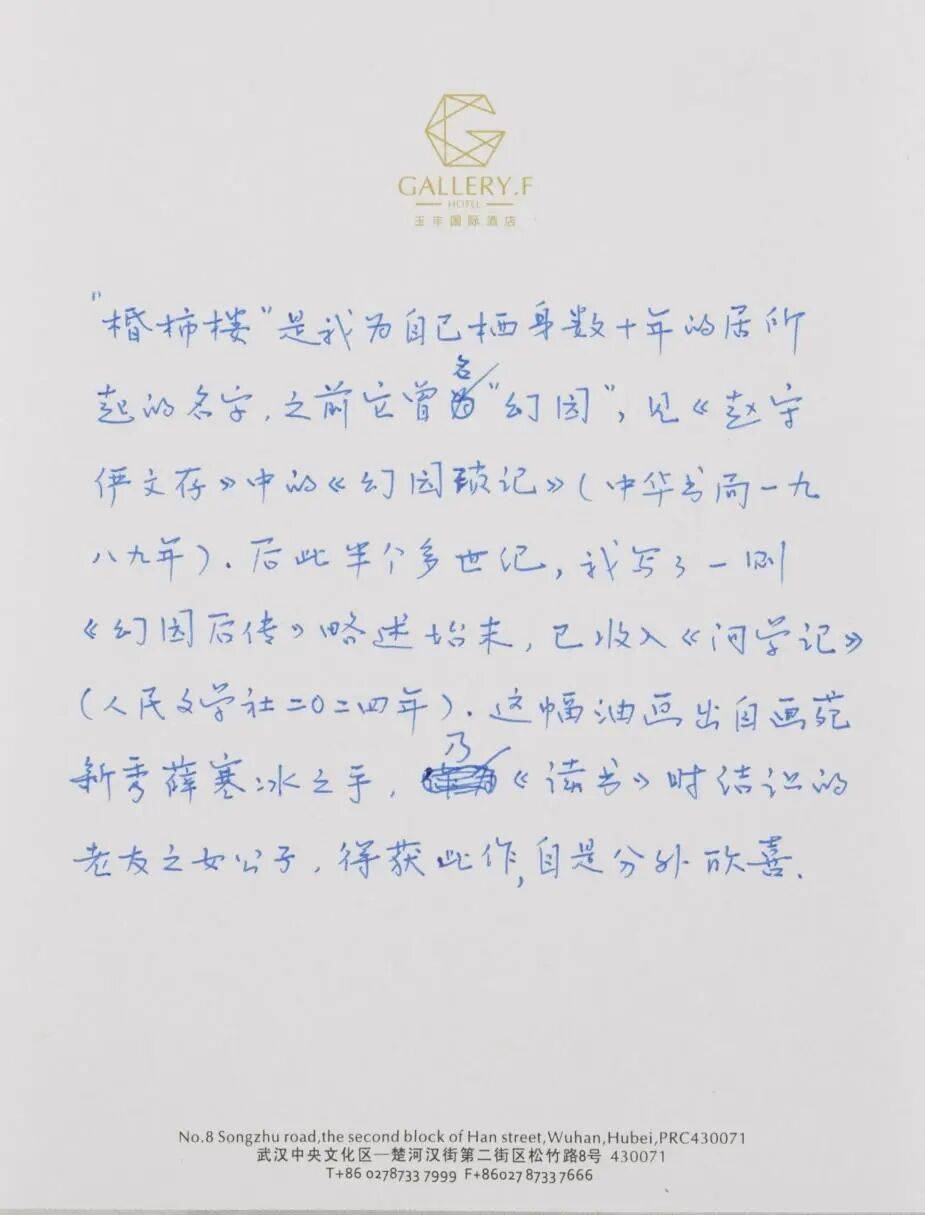 GALLERY.F
HOTEL
玉丰国际酒店
"棔柿楼"是我为自己栖身数十年的居所
起的名字，之前它曾名"幻园"，见《赵守
俨文存》中的《幻园琐记》（中华书局一九
八九年）．后此半个多世纪，我写了一则
《幻园后传》略述始末，已收入《问学记》
（人民文学社二〇二四年）．这幅油画出自画苑
新秀薛寒冰之手，乃《读书》时结识的
老友之女公子，得获此作，自是分外欣喜．
No.8 Songzhu road,the second block of Han street,Wuhan,Hubei,PRC430071
武汉中央文化区—楚河汉街第二街区松竹路8号 430071
T+86 0278733 7999 F+86027 8733 7666